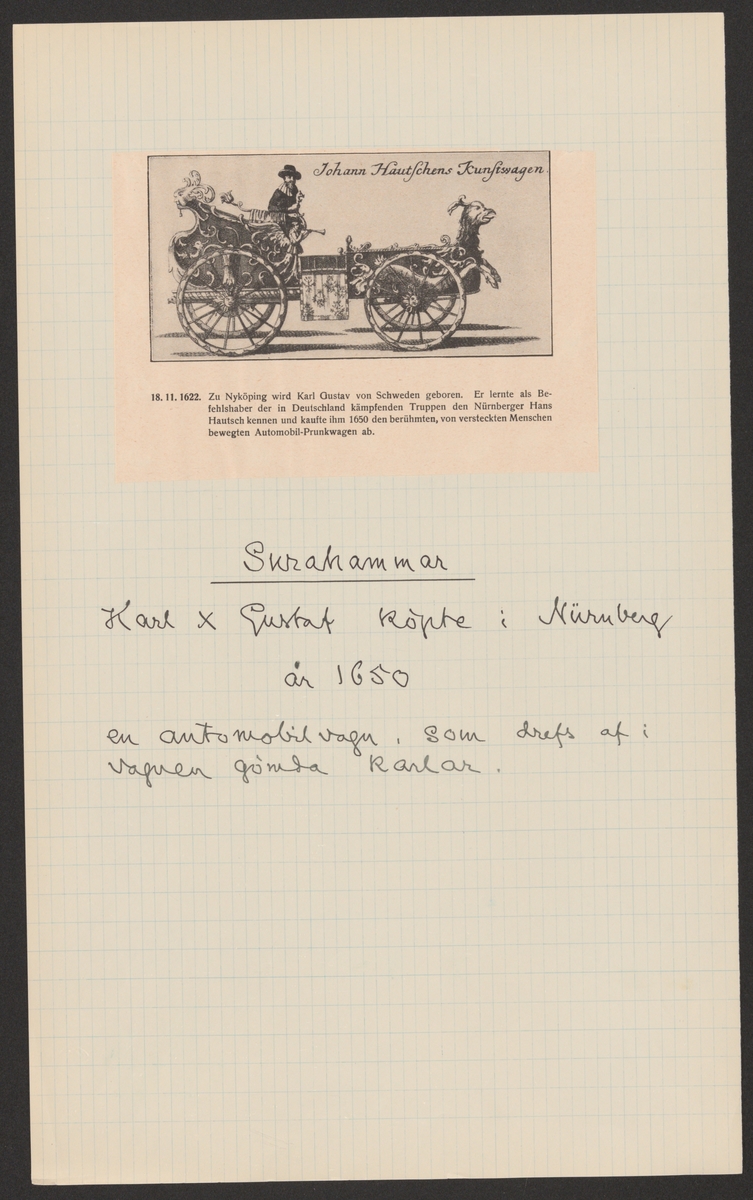 Johann Hautschens Kunstwagen.
18. 11. 1622. Zu Nyköping wird Karl Gustav von Schweden geboren. Er lernte als Be-
fehlshaber der in Deutschland kämpfenden Truppen den Nürnberger Hans
Hautsch kennen und kaufte ihm 1650 den berühmten, von versteckten Menschen
bewegten Automobil-Prunkwagen ab.
Surahammar
Karl X Gustaf köpte i Nürnberg
år 1650
en automobilvagn, som drefs af i
vagnen gömda karlar.